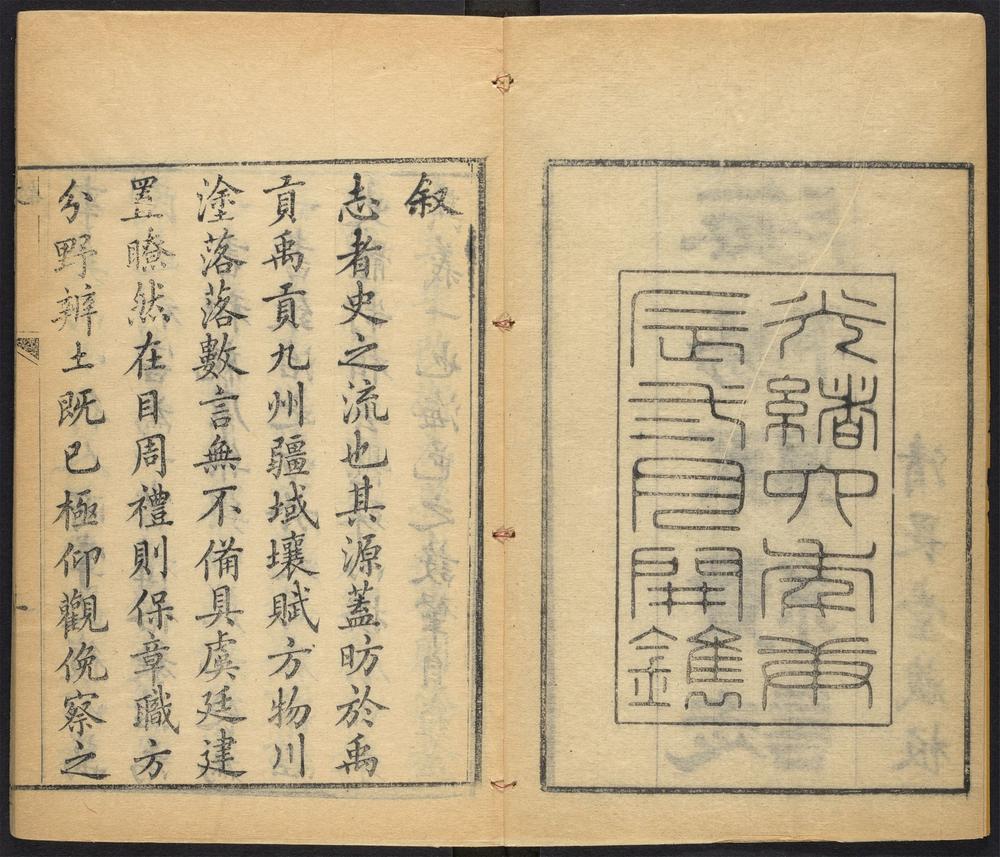 光緒六年庚
辰五月開鐫
叙
志者史之流也其源蓋昉於禹
貢禹貢九州疆域壤賦方物川
塗落落數言無不備具虞廷建
置瞭然在目周禮則保章職方
分野辨土既已極仰觀俛察之